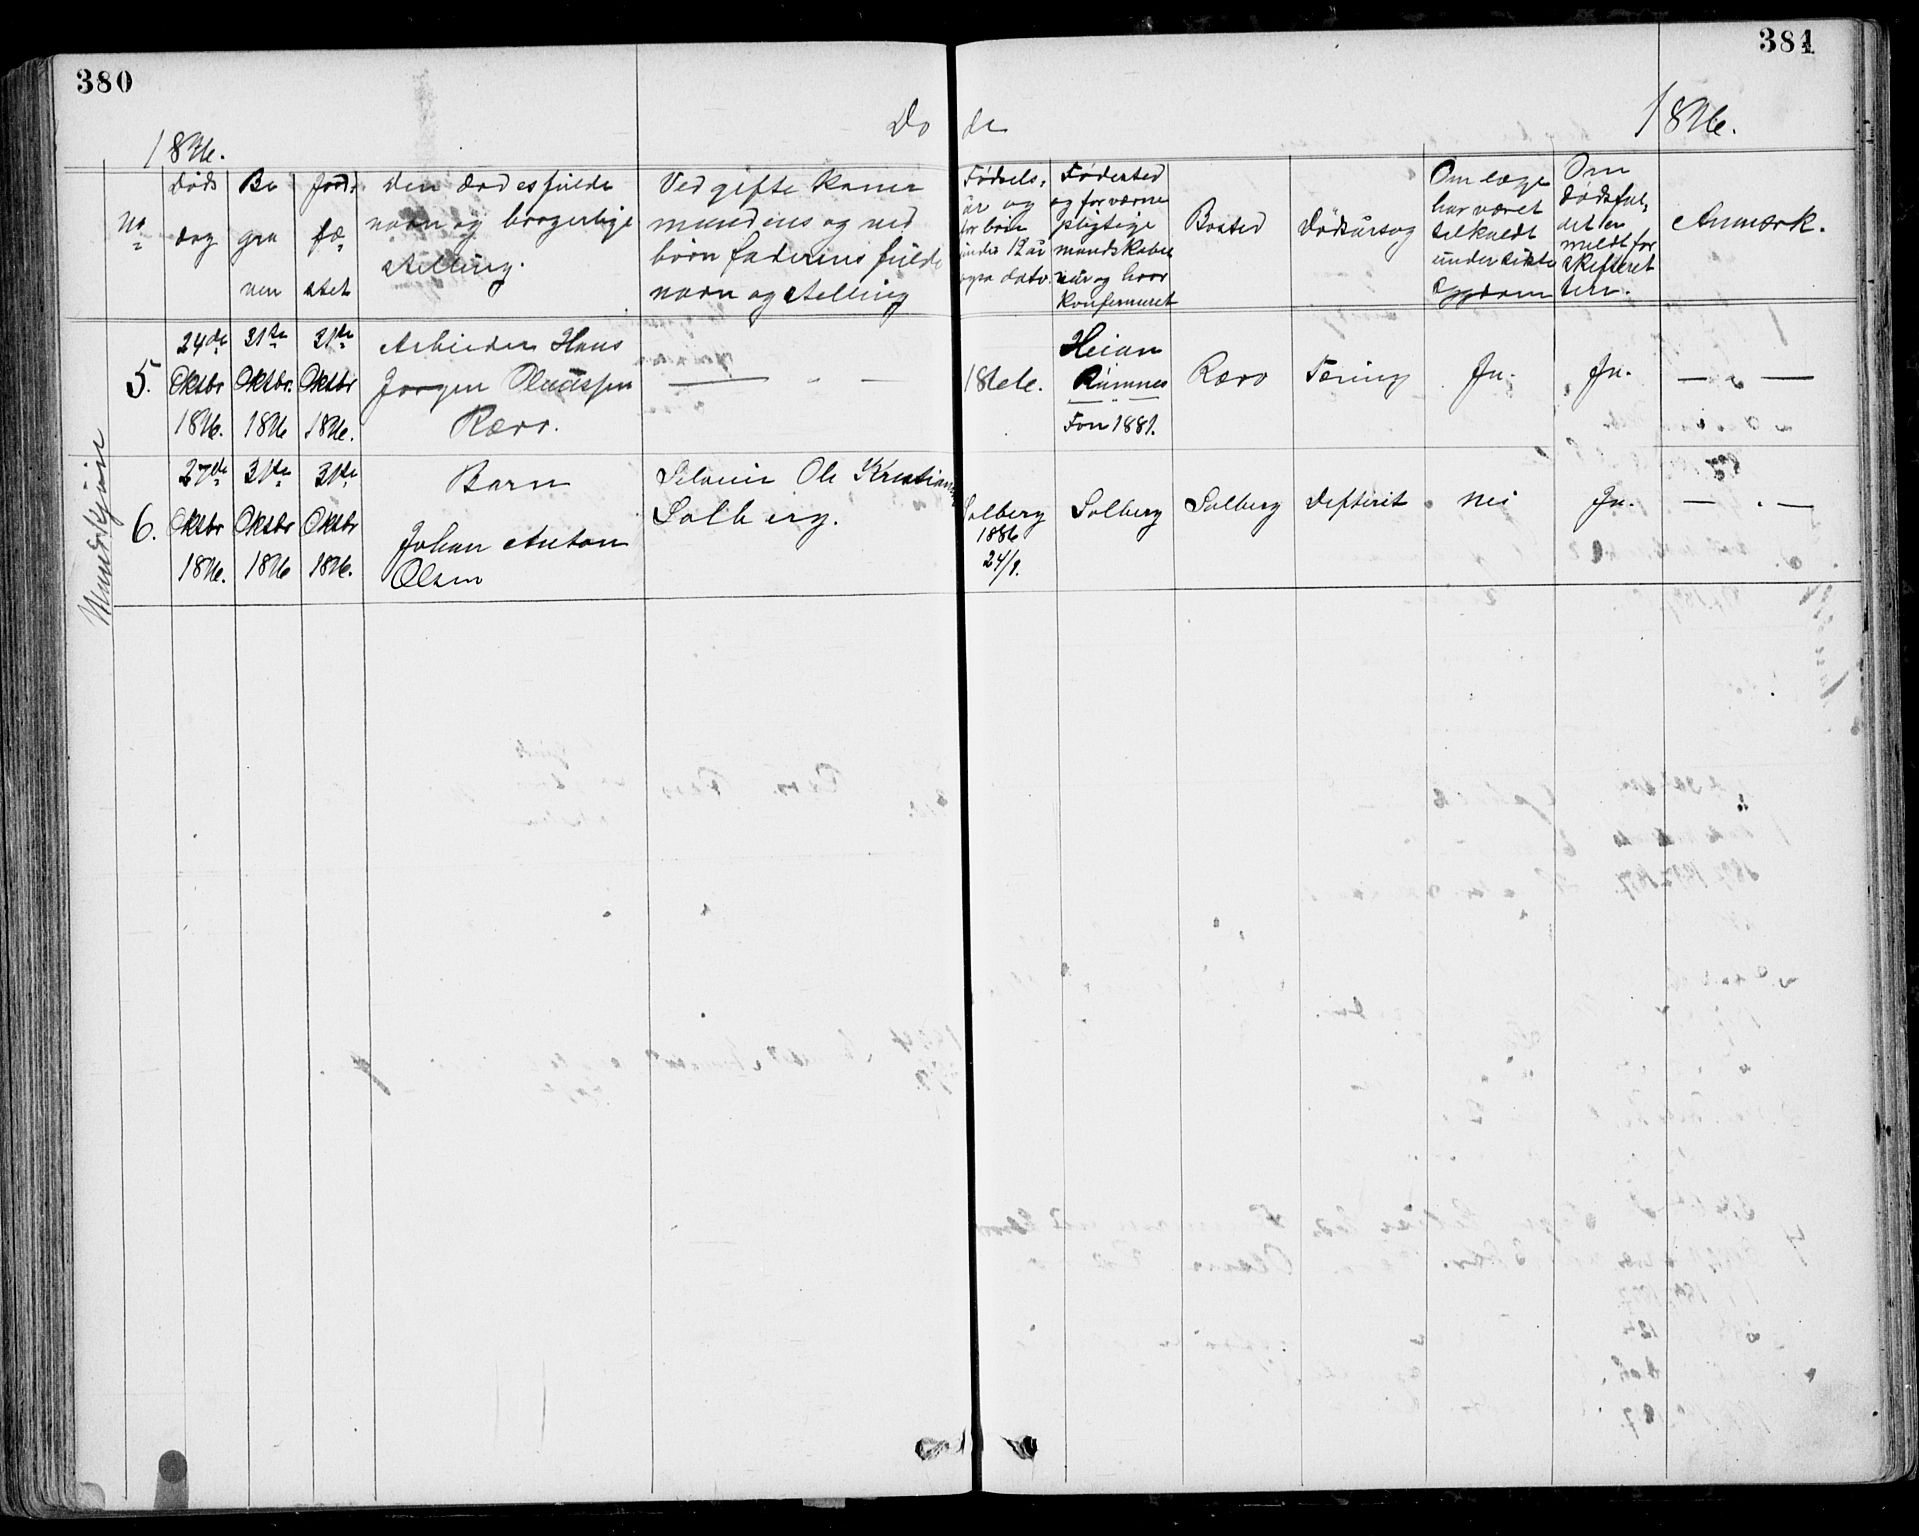 380
381
Dø de
1896.
1896.
No
Døds
dag
Be
gra
ven
Jord
fæ
stet
Den Dødes fulde
navn og borgerlige
stilling.
Ved gifte Koner
mandens og ved
børn faderens fulde
navn og stilling
Fødsels,
år og
for børn
under 12 år
også dato.
Fødested
og for værne
pligtige
mandskaber
når og hvor
Konfirmeret
Bosted
Dødsårsag
Om læge
har været
tilkaldt
under sidste
Sygdom
Om
dødsfal,
det er
meldt for
Skifteret
ten.
Anmærk.
5.
24de
Oktbr
1896.
31te
Oktbr.
1896
31te
Oktbr
1896.
Arbeider Hans
Jørgen
Rærv.
Heian
Ramnes
Fon 1881.
Rærv
Tæring
Ja.
Ja.
6.
27de
Oktbr
1896.
31te
Oktbr
1896
31te
Oktbr
1896.
Barn
Johan Anton
Olsen
Selveier Ole Kristians
Solberg.
Solberg
1886
24/9.
Solberg
Solberg
Difterit
Nei
Ja.